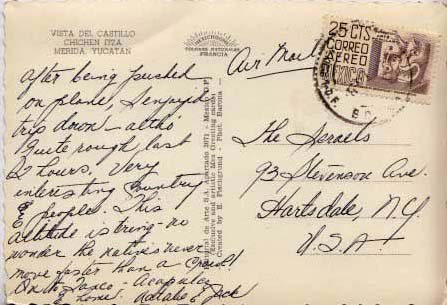 VISTA DEL CASTILLO
CHICHEN ITZA
MERIDA, YUCATAN
MEXICHROME
COLORES NATURALES
FRANCIA
Air Mail
25 CTS
CORREO
AEREO
MEXICO
After being pushed
on plane, enjoyed
trip down - altho
quite rough last
2 hours, Very
interesting country
& people. This
altitude is tiring - no
wonder the natives never
move faster than a crawl!
On to Taxco - Acapulco
& home. Natalie & Jack
de Arte S.A. Apartado 2071 - Mexico D.F.
The Israels
93 Stevenson Ave.
Hartsdale, N.Y.
U.S.A